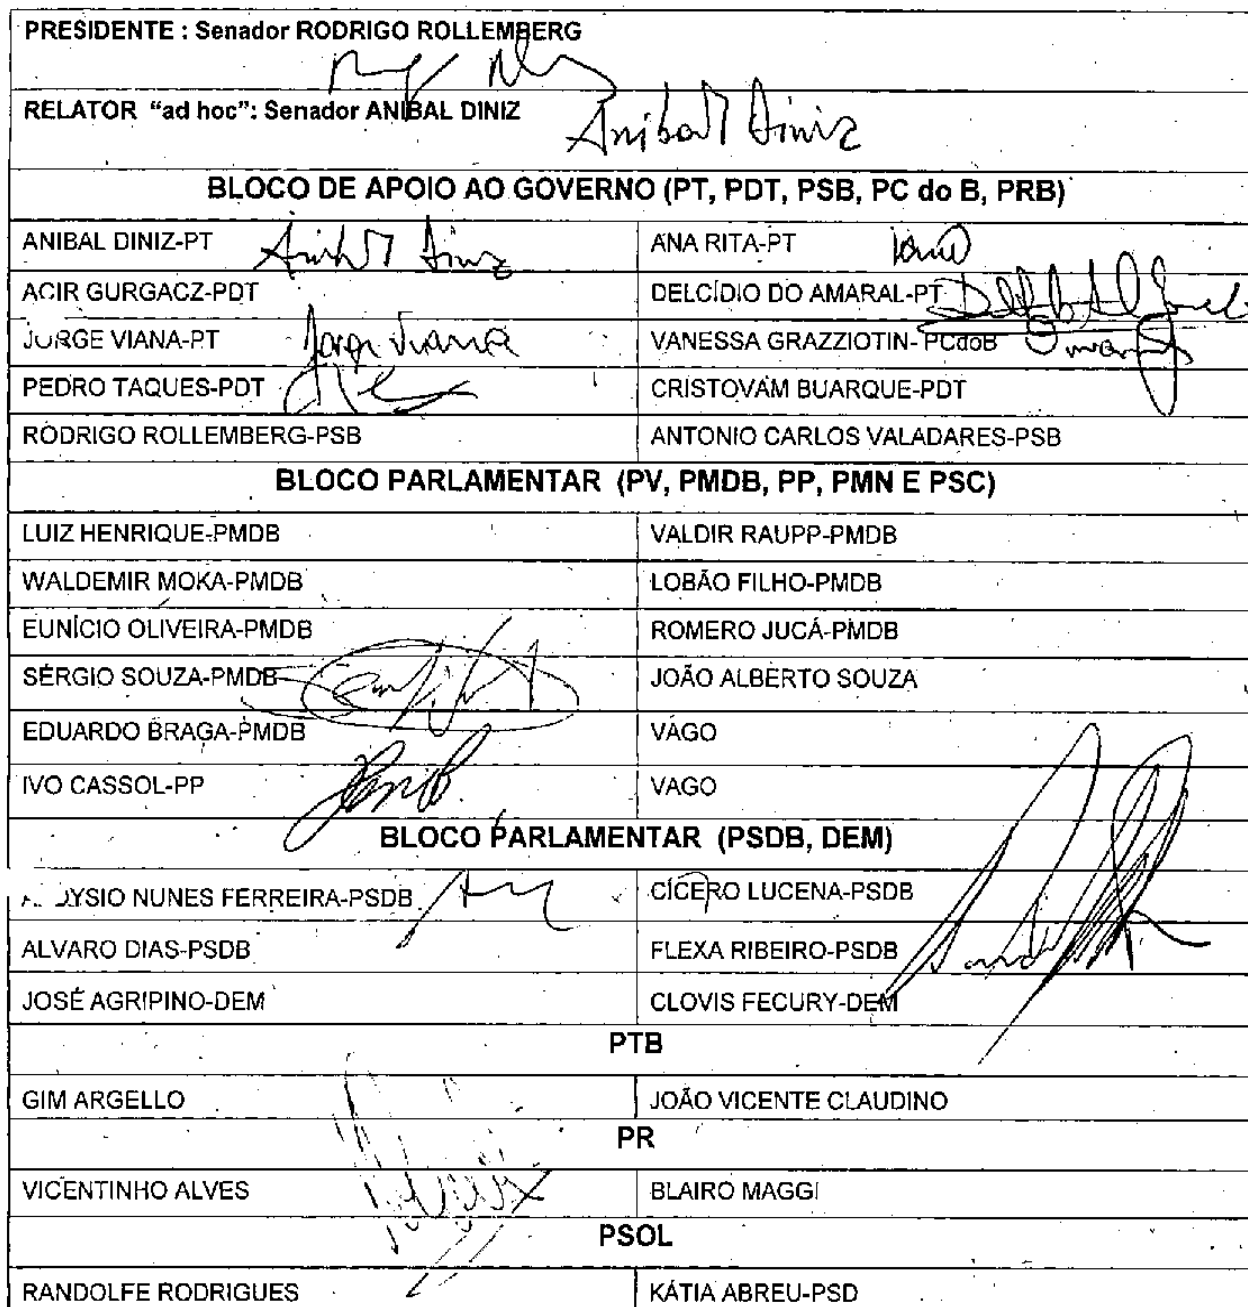 PRESIDENTE : Senador RODRIGO ROLLEMBERG
RELATOR “ad hoc”: Senador ANIBAL DINIZ
Anibal Diniz
BLOCO DE APOIO AO GOVERNO (PT, PDT, PSB, PC do B, PRB)
ANIBAL DINIZ-PT Anibal Diniz ANA RITA-PT
ACIR GURGACZ-PDT DELCÍDIO DO AMARAL-PT
JORGE VIANA-PT Jorge Viana VANESSA GRAZZIOTIN-PCdoB
PEDRO TAQUES-PDT CRISTOVAM BUARQUE-PDT
RODRIGO ROLLEMBERG-PSB ANTONIO CARLOS VALADARES-PSB
BLOCO PARLAMENTAR (PV, PMDB, PP, PMN E PSC)
LUIZ HENRIQUE-PMDB VALDIR RAUPP-PMDB
WALDEMIR MOKA-PMDB LOBÃO FILHO-PMDB
EUNÍCIO OLIVEIRA-PMDB ROMERO JUCÁ-PMDB
SÉRGIO SOUZA-PMDB JOÃO ALBERTO SOUZA
EDUARDO BRAGA-PMDB VAGO
IVO CASSOL-PP VAGO
BLOCO PARLAMENTAR (PSDB, DEM)
YSIO NUNES FERREIRA-PSDB CÍCERO LUCENA-PSDB
ALVARO DIAS-PSDB FLEXA RIBEIRO-PSDB
JOSÉ AGRIPINO-DEM CLOVIS FECURY-DEM
PTB
GIM ARGELLO JOÃO VICENTE CLAUDINO
PR
VICENTINHO ALVES BLAIRO MAGGI
PSOL
RANDOLFE RODRIGUES KÁTIA ABREU-PSD